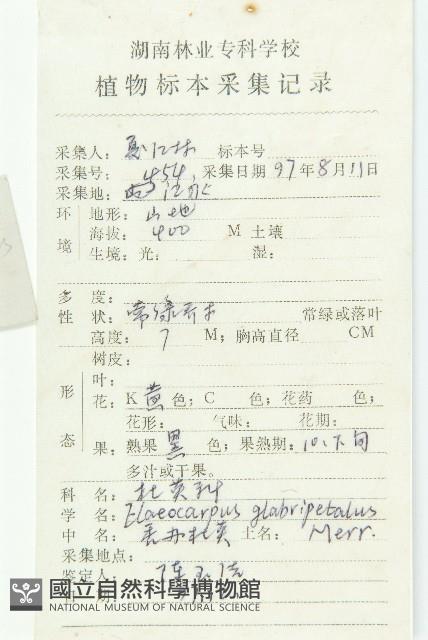 湖南林业专科学校
植物标本采集记录
采集人: 标本号
采集号: 454, 采集日期 97年8月11日
采集地:
环境 地形: 山地
海拔: 400 M 土壤
生境: 光: 湿:
多度:
性状: 常绿乔木 常绿或落叶
高度: 7 M; 胸高直径 CM
树皮:
形态 叶:
花: K 黄 色; C 色; 花药 色;
花形: 气味: 花期:
果: 熟果 黑 色; 果熟期: 10.下旬
多汁或干果。
科名: 杜英科
学名: Elaeocarpus glabripetalus
中名: 秃瓣杜英 土名: Merr.
采集地点:
鉴定人:
國立自然科學博物館
NATIONAL MUSEUM OF NATURAL SCIENCE